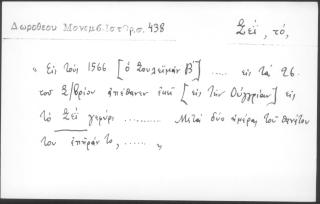 Δωροθέου Μονεμβ. Ἱστορ. σ. 438
Σεί, τό,
« Εἰς τοὺς 1566 [ὁ Σουλεϊμὰν Β'] ..... εἰς τὰ 26
τοῦ Σ/βρίου ἀπέθανεν ἐκεῖ [εἰς τὴν Οὐγγρίαν] εἰς
τὸ Σεί γεμύρι ........ Μετὰ δύο ἡμέρας τοῦ θανάτου
του ἐπῆράν το, ...... »